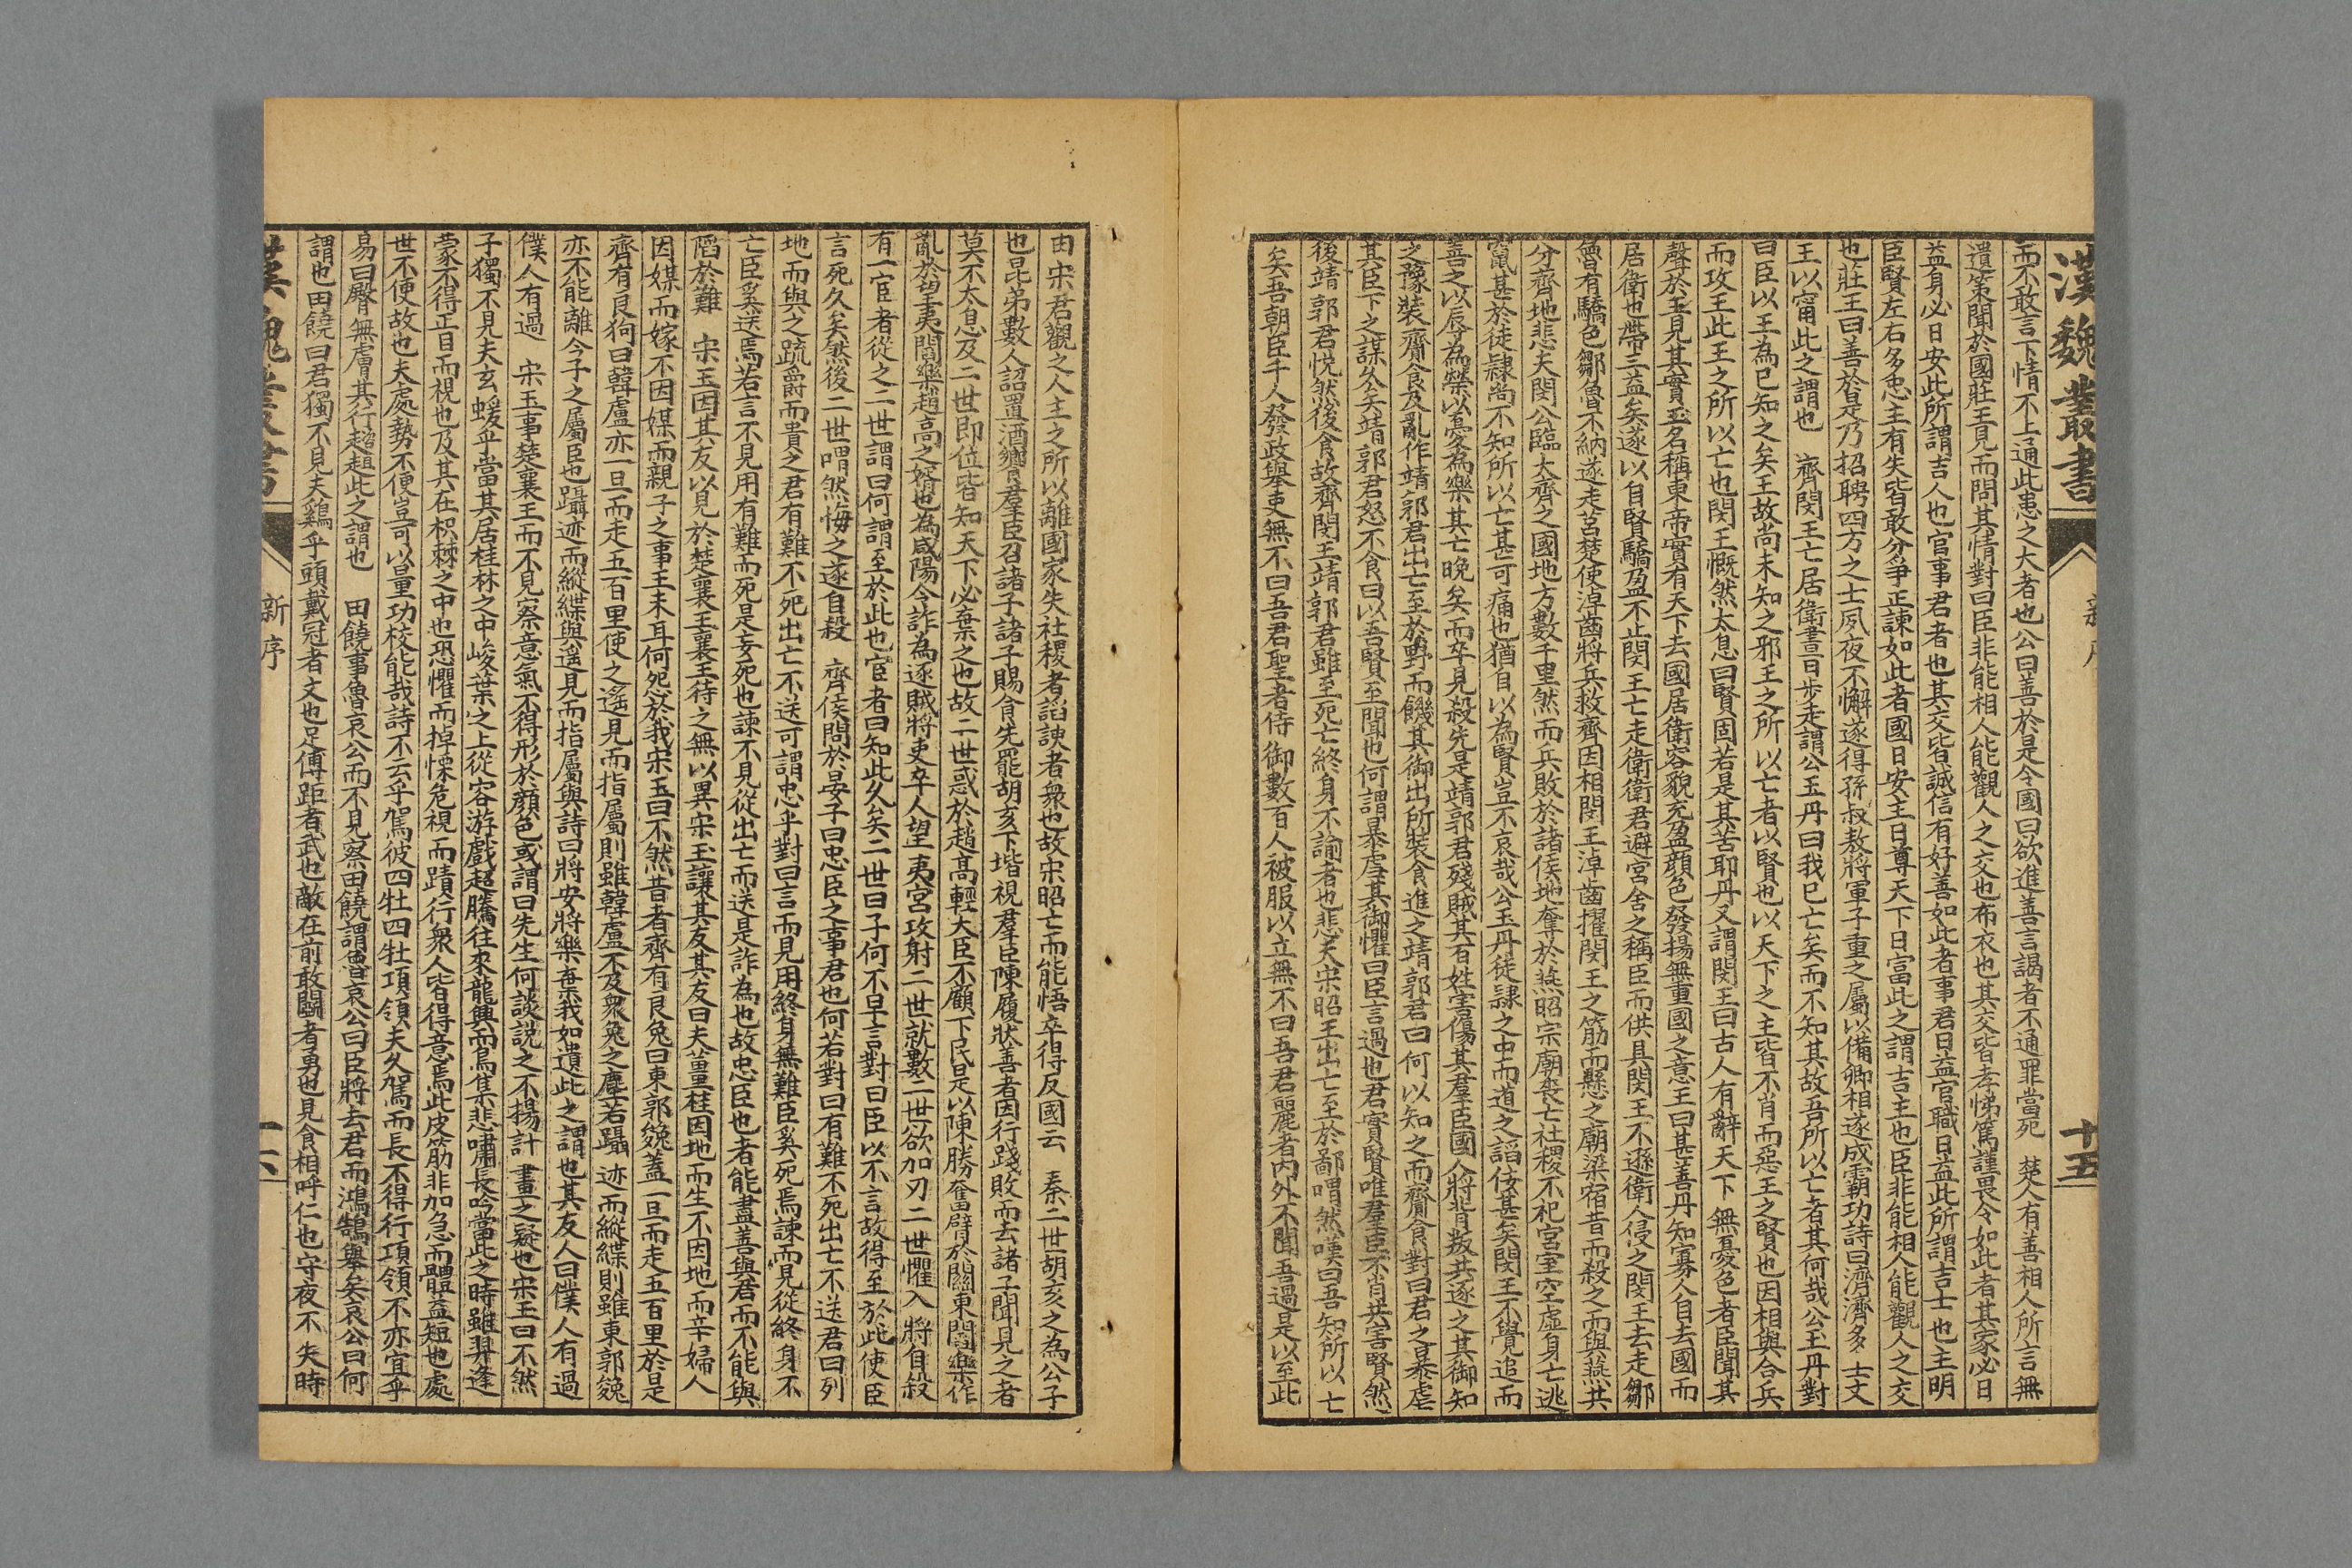 漢魏叢書
十五
而不敢言下情不上通此患之大者也公曰善於是令國曰欲進善言謁者不通罪當死　楚人有善相人所言無
遺策聞於國莊王見而問其情對曰臣非能相人能觀人之交也布衣也其交皆孝悌篤謹畏令如此者其家必日
益身必日安此所謂吉人也官事君者也其交皆誠信有好善如此者事君日益官職日益此所謂吉士也主明
臣賢左右多忠主有失皆敢分爭正諫如此者國日安主日尊天下日富此之謂吉主也臣非能相人能觀人之交
也莊王曰善於是乃招聘四方之士夙夜不懈遂得孫叔敖將軍子重之屬以備卿相遂成霸功詩曰濟濟多士文
王以甯此之謂也　齊閔王亡居衛晝日步走謂公玉丹曰我已亡矣而不知其故吾所以亡者其何哉公玉丹對
曰臣以王為已知之矣王故尚未知之邪王之所以亡者以賢也以天下之主皆不肖而惡王之賢也因相與合兵
而攻王此王之所以亡也閔王慨然太息曰賢固若是其苦耶丹又謂閔王曰古人有辭天下無憂色者臣聞其
聲於王見其實王名稱東帝實有天下去國居衛容貌充盈顏色發揚無重國之意王曰甚善丹知寡人自去國而
居衛也帶三益矣遂以自賢驕盈不止閔王亡走衛衛君避宮舍之稱臣而供具閔王不遜衛人侵之閔王去走鄒
魯有驕色鄒魯不納遂走莒楚使淖齒將兵救齊因相閔王淖齒擢閔王之筋而懸之廟梁宿昔而殺之而與燕共
分齊地悲夫閔公臨大齊之國地方數千里然而兵敗於諸侯地奪於燕昭宗廟喪亡社稷不祀宮室空虛身亡逃
竄甚於徒隸尚不知所以亡甚可痛也猶自以為賢豈不哀哉公玉丹徒隸之中而道之諂佞甚矣閔王不覺追而
善之以辱為榮以憂為樂其亡晚矣而卒見殺先是靖郭君殘賊其百姓害傷其羣臣國人將背叛共逐之其御知
之豫裝齎食及亂作靖郭君出亡至於野而饑其御出所裝食進之靖郭君曰何以知之而齎食對曰君之暴虐
其臣下之謀久矣靖郭君怒不食曰以吾賢至聞也何謂暴虐其御懼曰臣言過也君實賢唯羣臣不肖共害賢然
後靖郭君悅然後食故齊閔王靖郭君雖至死亡終身不諭者也悲夫宋昭王出亡至於鄙喟然嘆曰吾知所以亡
矣吾朝臣千人發政舉吏無不曰吾君聖者侍御數百人被服以立無不曰吾君麗者內外不聞吾過是以至此
由宋君觀之人主之所以離國家失社稷者諂諛者衆也故宋昭亡而能悟卒得反國云　秦二世胡亥之為公子
也昆弟數人詔置酒饗羣臣召諸子諸子賜食先罷胡亥下堦視羣臣陳履狀善者因行踐敗而去諸子聞見之者
莫不太息及二世即位皆知天下必棄之也故二世惑於趙高輕大臣不顧下民是以陳勝奮臂於關東閻樂作
亂於望夷閻樂趙高之婿也為咸陽令詐為逐賊將吏卒人望夷宮攻射二世就數二世欲加刃二世懼入將自殺
有一宦者從之二世謂曰何謂至於此也宦者曰知此久矣二世曰子何不早言對曰臣以不言故得至於此使臣
言死久矣然後二世喟然悔之遂自殺　齊侯問於晏子曰忠臣之事君也何若對曰有難不死出亡不送君曰列
地而與之疏爵而貴之君有難不死出亡不送可謂忠乎對曰言而見用終身無難臣奚死焉諫而見從終身不
亡臣奚送焉若言不見用有難而死是妄死也諫不見從出亡而送是詐為也故忠臣也者能盡善與君而不能與
陷於難　宋玉因其友以見於楚襄王襄王待之無以異宋玉讓其友其友曰夫薑桂因地而生不因地而辛婦人
因媒而嫁不因媒而親子之事王未耳何怨於我宋玉曰不然昔者齊有良兔曰東郭㕙蓋一旦而走五百里於是
齊有良狗曰韓盧亦一旦而走五百里使之遙見而指屬則雖韓盧不及衆兔之塵若躡迹而縱緤則雖東郭㕙
亦不能離今子之屬臣也躡迹而縱緤與遙見而指屬與詩曰將安將樂棄我如遺此之謂也其友人曰僕人有過
僕人有過　宋玉事楚襄王而不見察意氣不得形於顏色或謂曰先生何談說之不揚計畫之疑也宋玉曰不然
子獨不見夫玄蝯乎當其居桂林之中峻葉之上從容游戲超騰往來龍興而鳥集悲嘯長吟當此之時雖羿逢
蒙不得正目而視也及其在枳棘之中也恐懼而掉慄危視而蹟行衆人皆得意焉此皮筋非加急而體益短也處
世不便故也夫處勢不便豈可以量功校能哉詩不云乎駕彼四牡四牡項領夫久駕而長不得行項領不亦宜乎
易曰臀無膚其行趑趄此之謂也　田饒事魯哀公而不見察田饒謂魯哀公曰臣將去君而鴻鵠舉矣哀公曰何
謂也田饒曰君獨不見夫鷄乎頭戴冠者文也足傅距者武也敵在前敢鬬者勇也見食相呼仁也守夜不失時
漢魏叢書
新序
十六